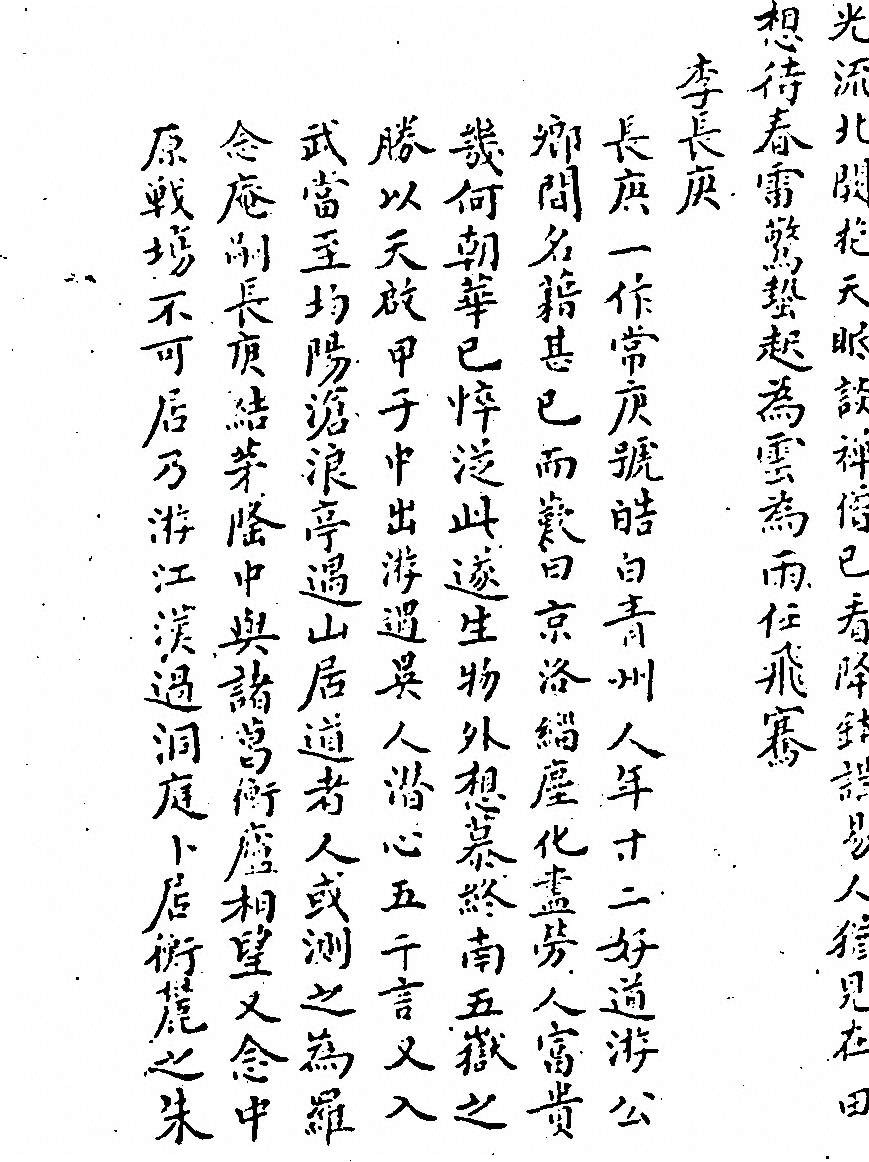 光流北闕從天眺談禪僧已看降鉢講易人猶見在田
想待春雷驚蟄起為雲為雨任飛騫
李長庚
長庚一作常庚號皓白青州人年十二好道游公
鄉間名藉甚已而歎曰京洛緇塵化盡勞人富貴
幾何朝華已悴從此遂生物外想慕終南五嶽之
勝以天啟甲子中出游過吳人潛心五千言又入
武當至均陽滄浪亭遇山居道者人或測之為羅
念庵嗣長庚結茅隆中與諸葛衡廬相望又念中
原戰場不可居乃游江漢過洞庭卜居衡麓之朱